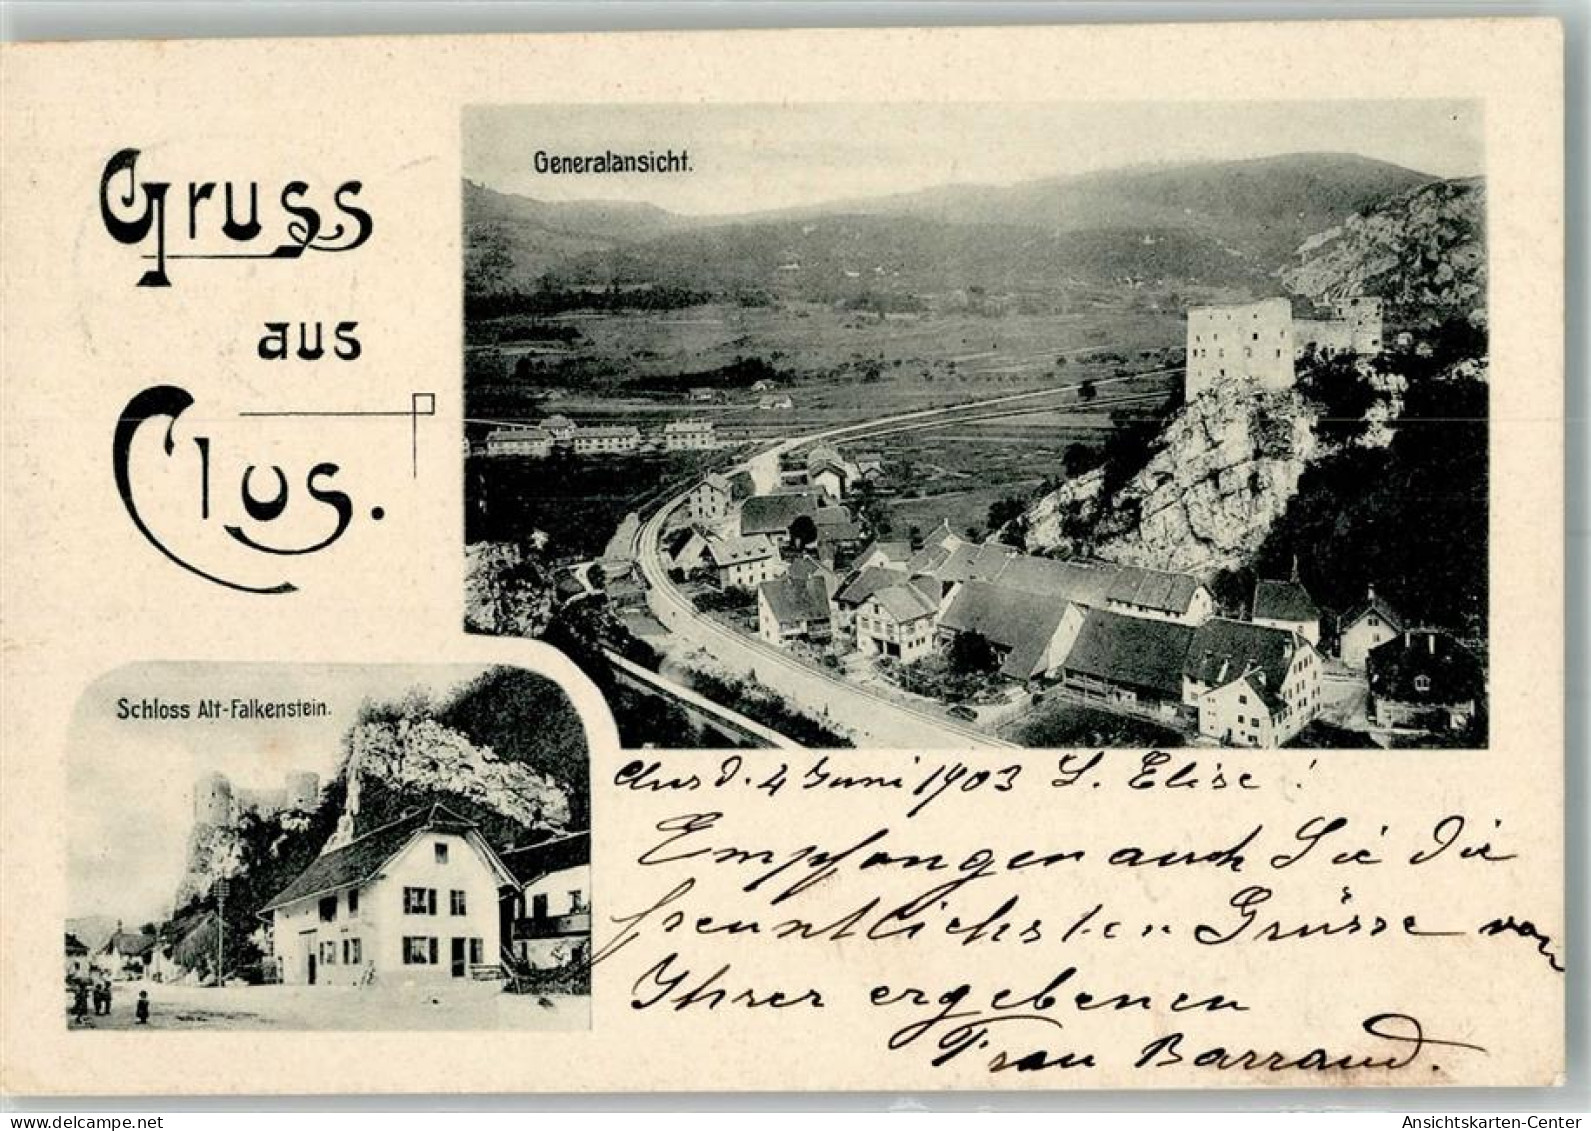 Gruss
aus
Clus.
Generalansicht.
Schloss Alt-Falkenstein.
Clus d. 4 Juni 1903 L. Elise!
Empfangen auch Sie die
freuntlichsten Grüsse von
Ihrer ergebenen
Frau Barraud.
www.delcampe.net
Ansichtskarten-Center